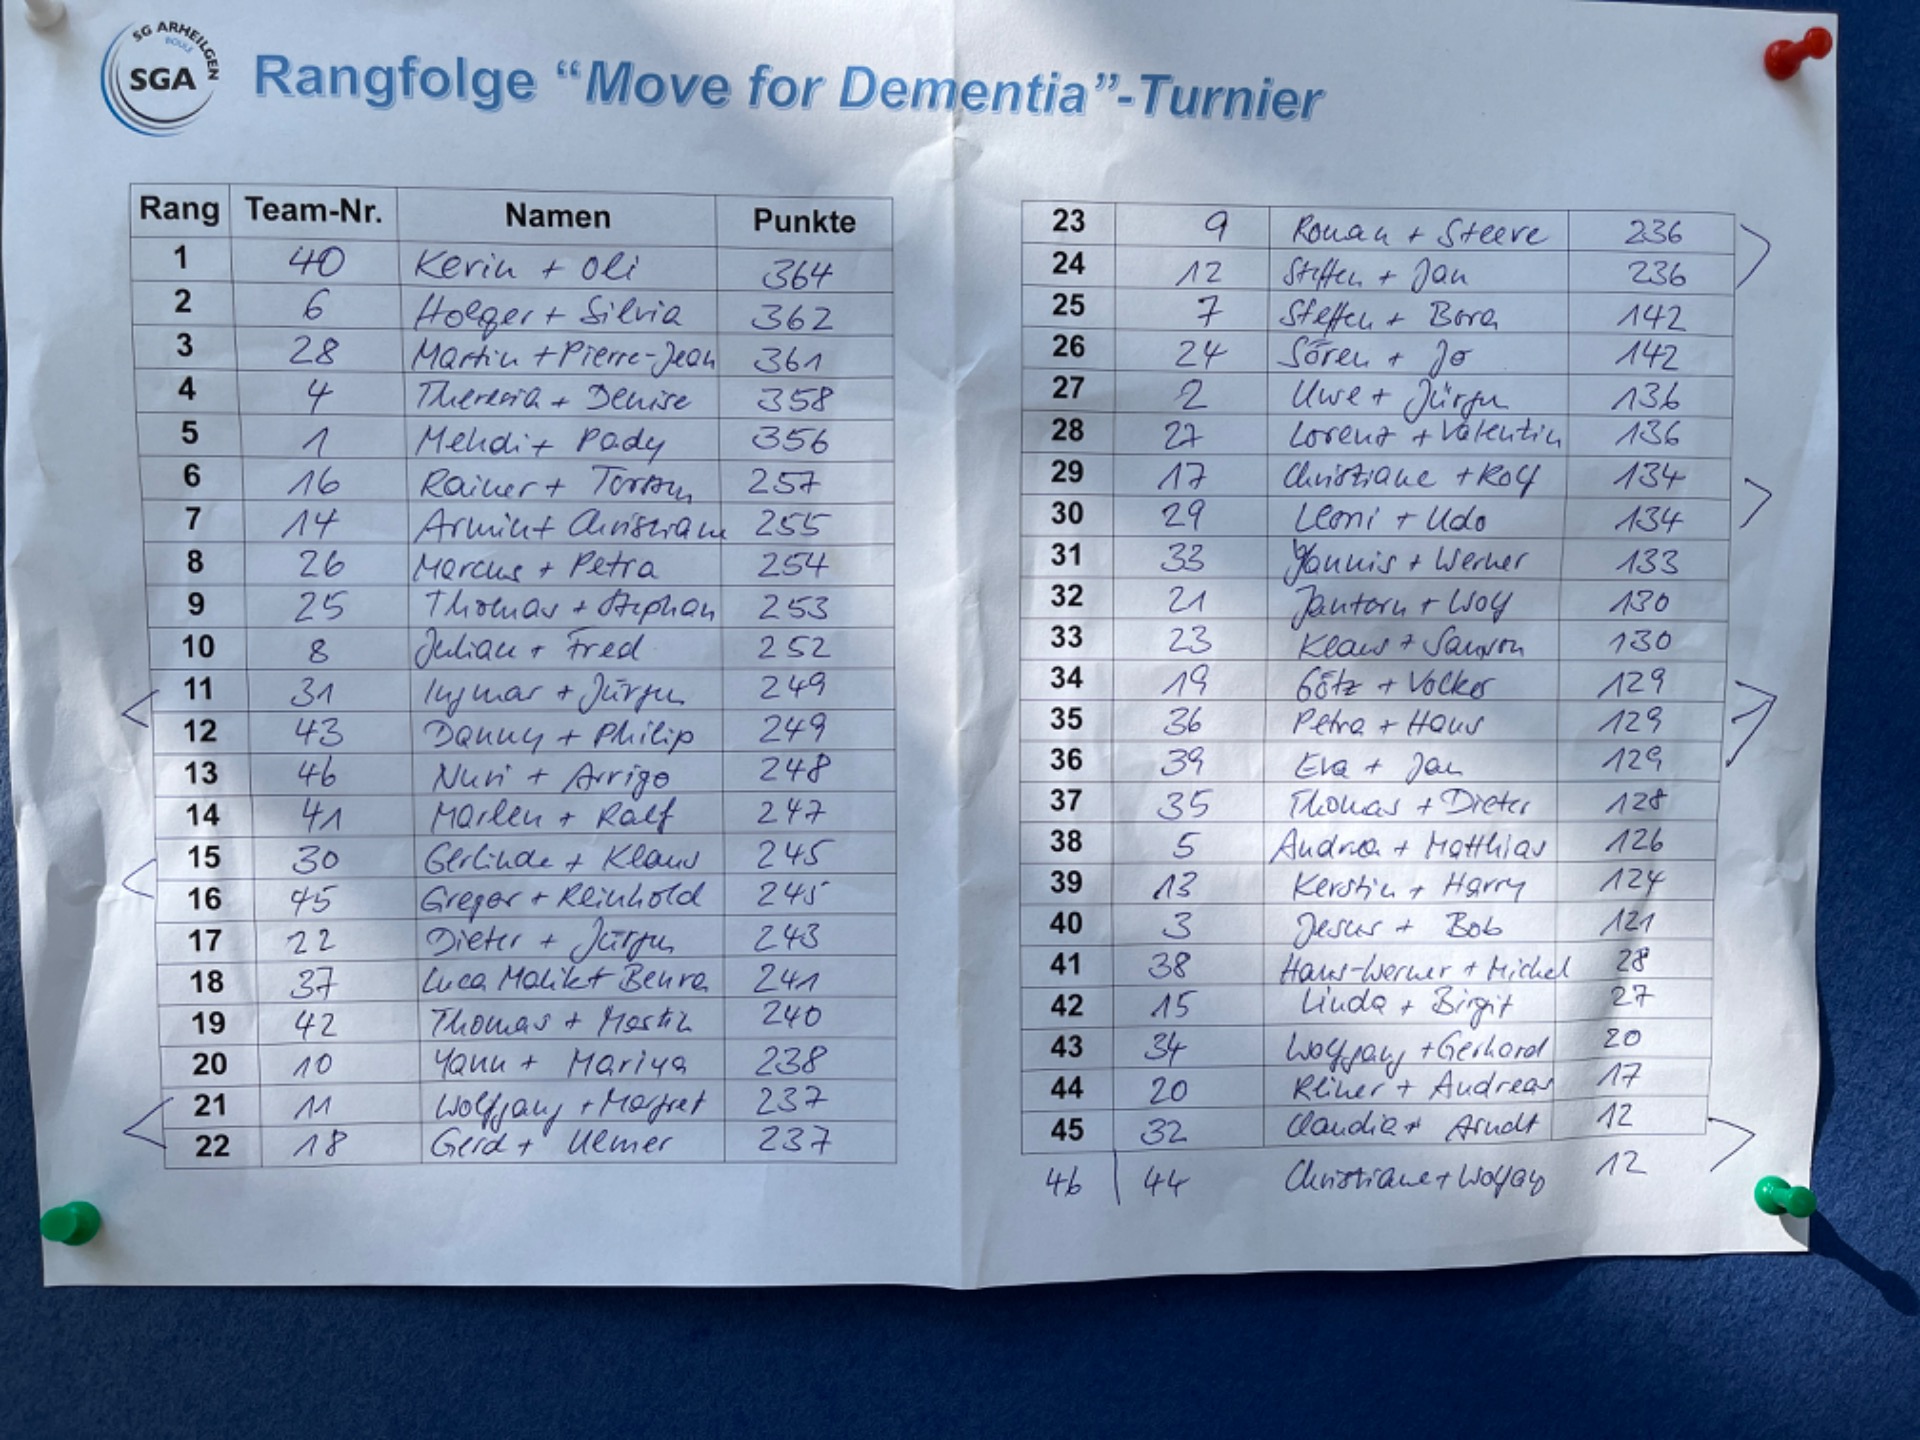 SG ARHEILGEN
BOULE
SGA
Rangfolge “Move for Dementia”-Turnier
Rang Team-Nr. Namen Punkte
1 40 Kevin + Oli 364
2 6 Holger + Silvia 362
3 28 Martin + Pierre-Jean 361
4 4 Theresia + Denise 358
5 1 Mehdi + Pady 356
6 16 Rainer + Torsten 257
7 14 Armin + Christiane 255
8 26 Marcus + Petra 254
9 25 Thomas + Stephan 253
10 8 Julian + Fred 252
11 31 Ingmar + Jürgen 249
12 43 Danny + Philip 249
13 46 Nuri + Arrigo 248
14 41 Marlen + Ralf 247
15 30 Gerlinde + Klaus 245
16 45 Gregor + Reinhold 245
17 22 Dieter + Jürgen 243
18 37 Luca Malik + 241
19 42 Thomas + Martin 240
20 10 Yann + Mariya 238
21 11 Wolfgang + Margret 237
22 18 Gerd + 237
23 9 Roman + Steeve 236
24 12 Steffen + Jan 236
25 7 Steffen + Bora 142
26 24 Sören + Jo 142
27 2 Uwe + Jürgen 136
28 27 Lorenz + Valentin 136
29 17 Christiane + Rolf 134
30 29 Leoni + Udo 134
31 33 Yannis + Werner 133
32 21 + Wolf 130
33 23 Klaus + 130
34 19 Götz + Volker 129
35 36 Petra + Hans 129
36 39 Eva + Jan 129
37 35 Thomas + Dieter 128
38 5 Andrea + Matthias 126
39 13 Kerstin + Harry 124
40 3 Jesus + Bob 121
41 38 Hans-Werner + Michel 28
42 15 Linda + Birgit 27
43 34 Wolfgang + Gerhard 20
44 20 Reiner + Andreas 17
45 32 Claudia + Arndt 12
46 44 Christiane + Wolfgang 12